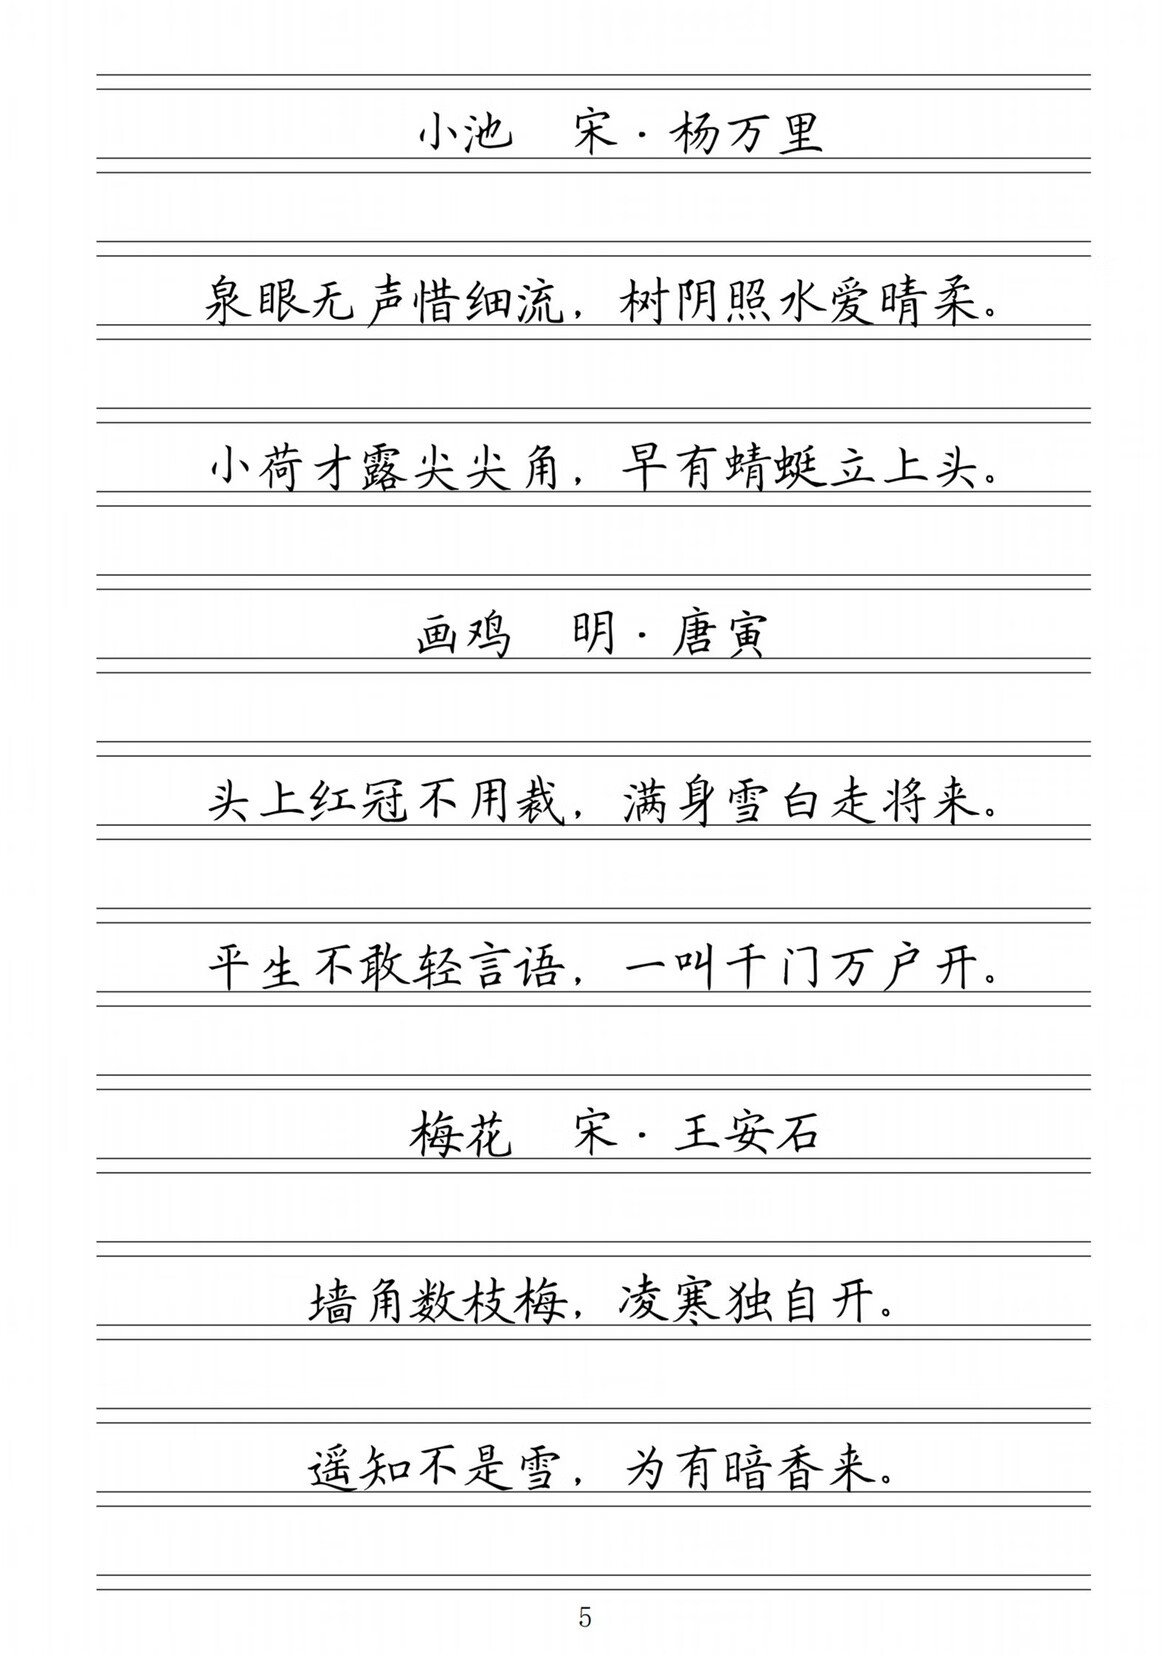 小池 宋·杨万里
泉眼无声惜细流，树阴照水爱晴柔。
小荷才露尖尖角，早有蜻蜓立上头。
画鸡 明·唐寅
头上红冠不用裁，满身雪白走将来。
平生不敢轻言语，一叫千门万户开。
梅花 宋·王安石
墙角数枝梅，凌寒独自开。
遥知不是雪，为有暗香来。
5